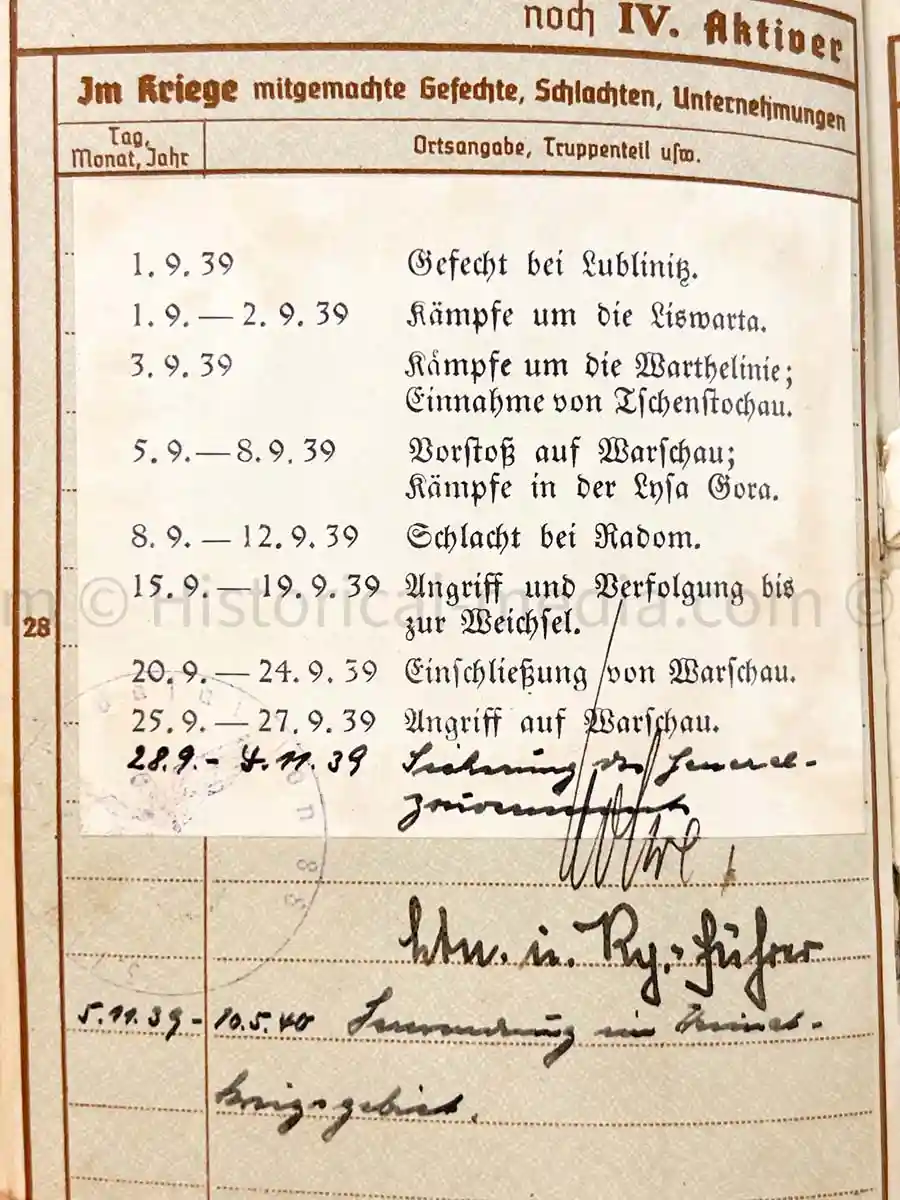 noch IV. Aktiver
Im Kriege mitgemachte Gefechte, Schlachten, Unternehmungen
Tag, Monat, Jahr
Ortsangabe, Truppenteil usw.
1. 9. 39 Gefecht bei Lublinitz.
1. 9. — 2. 9. 39 Kämpfe um die Liswarta.
3. 9. 39 Kämpfe um die Warthelinie;
Einnahme von Tschenstochau.
5. 9. — 8. 9. 39 Vorstoß auf Warschau;
Kämpfe in der Lysa Gora.
8. 9. — 12. 9. 39 Schlacht bei Radom.
15. 9. — 19. 9. 39 Angriff und Verfolgung bis
zur Weichsel.
20. 9. — 24. 9. 39 Einschließung von Warschau.
25. 9. — 27. 9. 39 Angriff auf Warschau.
28.9. - 4.11.39 Sicherung des General-
gouvernements
28
Ltn. u. Kp.-Führer
5.11.39 - 10.5.40 Verwendung im Heimat-
kriegsgebiet.
© Historical-media.com ©